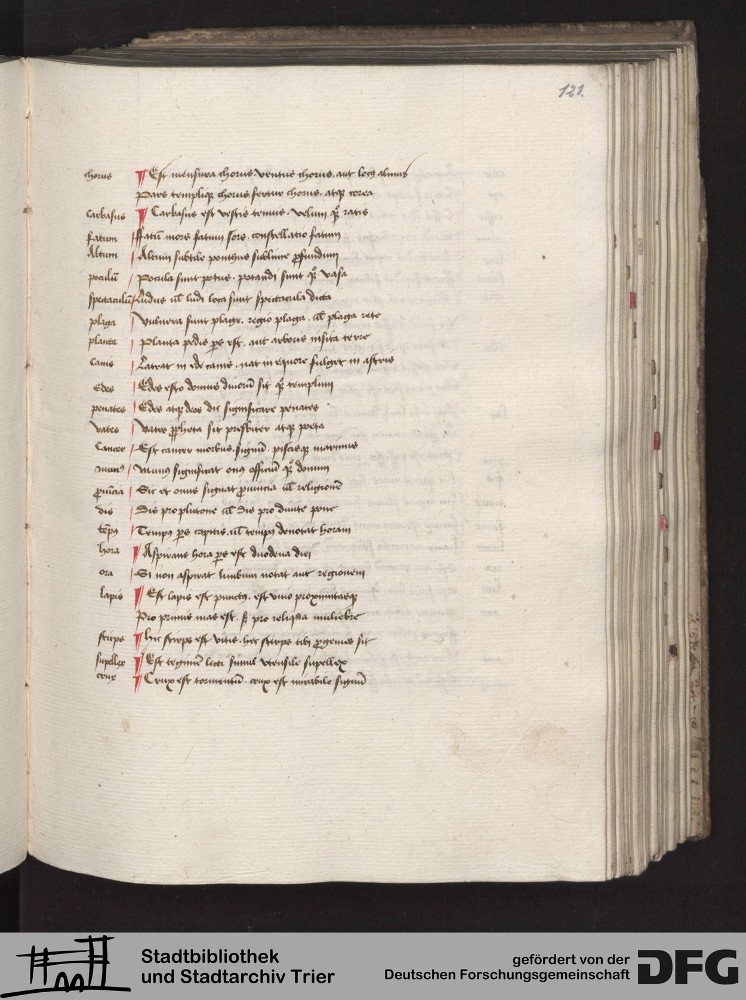 121.
chorus Est mensura chorus ventus chorus. aut locus almus
Pars templique chorus fertur chorus. atque corea
Carbasus Carbasus est vestis tenuis. velum quoque ratis
fatum Fatum mors fatum sors. constellatio fatum
Altum Altum subtile ponthus sublime profundum
poculum Pocula sunt potus. potandi sunt quoque vasa
spectaculum Ludus vel ludi loca sunt spectacula dicta
plaga Vulnera sunt plage. regio plaga. vel plaga rete
planta Planta pedis pars est. aut arboris insita terre
Canis Latrat in ede canis. nat in equore fulget in astris
Edes Edes esto domus divorum sit quoque templum
penates Edes atque deos dic significare penates
vates Vates propheta sit presbiter atque poeta
Cancer Est cancer morbus. signum. piscisque marinus
munus Munus significat onus officium quoque donum
provincia Sic et onus signat provincia vel religionem
dis Dis pro plutone vel Dis pro divite pone
tempus Tempus pars capitis. vel tempus denotat horam
hora Aspirans hora pars est duodena diei
ora Si non aspirat limbum notat aut regionem
lapis Est lapis est punctus. est vino proximitasque
Pro primis mas est. sed pro reliqua muliebre
stirps Hic stirps est vitis. hec stirps tibi progenies sit
supellex Est tegimen lecti simul utensile supellex
crux Crux est tormentum. crux est mirabile signum
Stadtbibliothek
und Stadtarchiv Trier
gefördert von der
Deutschen Forschungsgemeinschaft
DFG